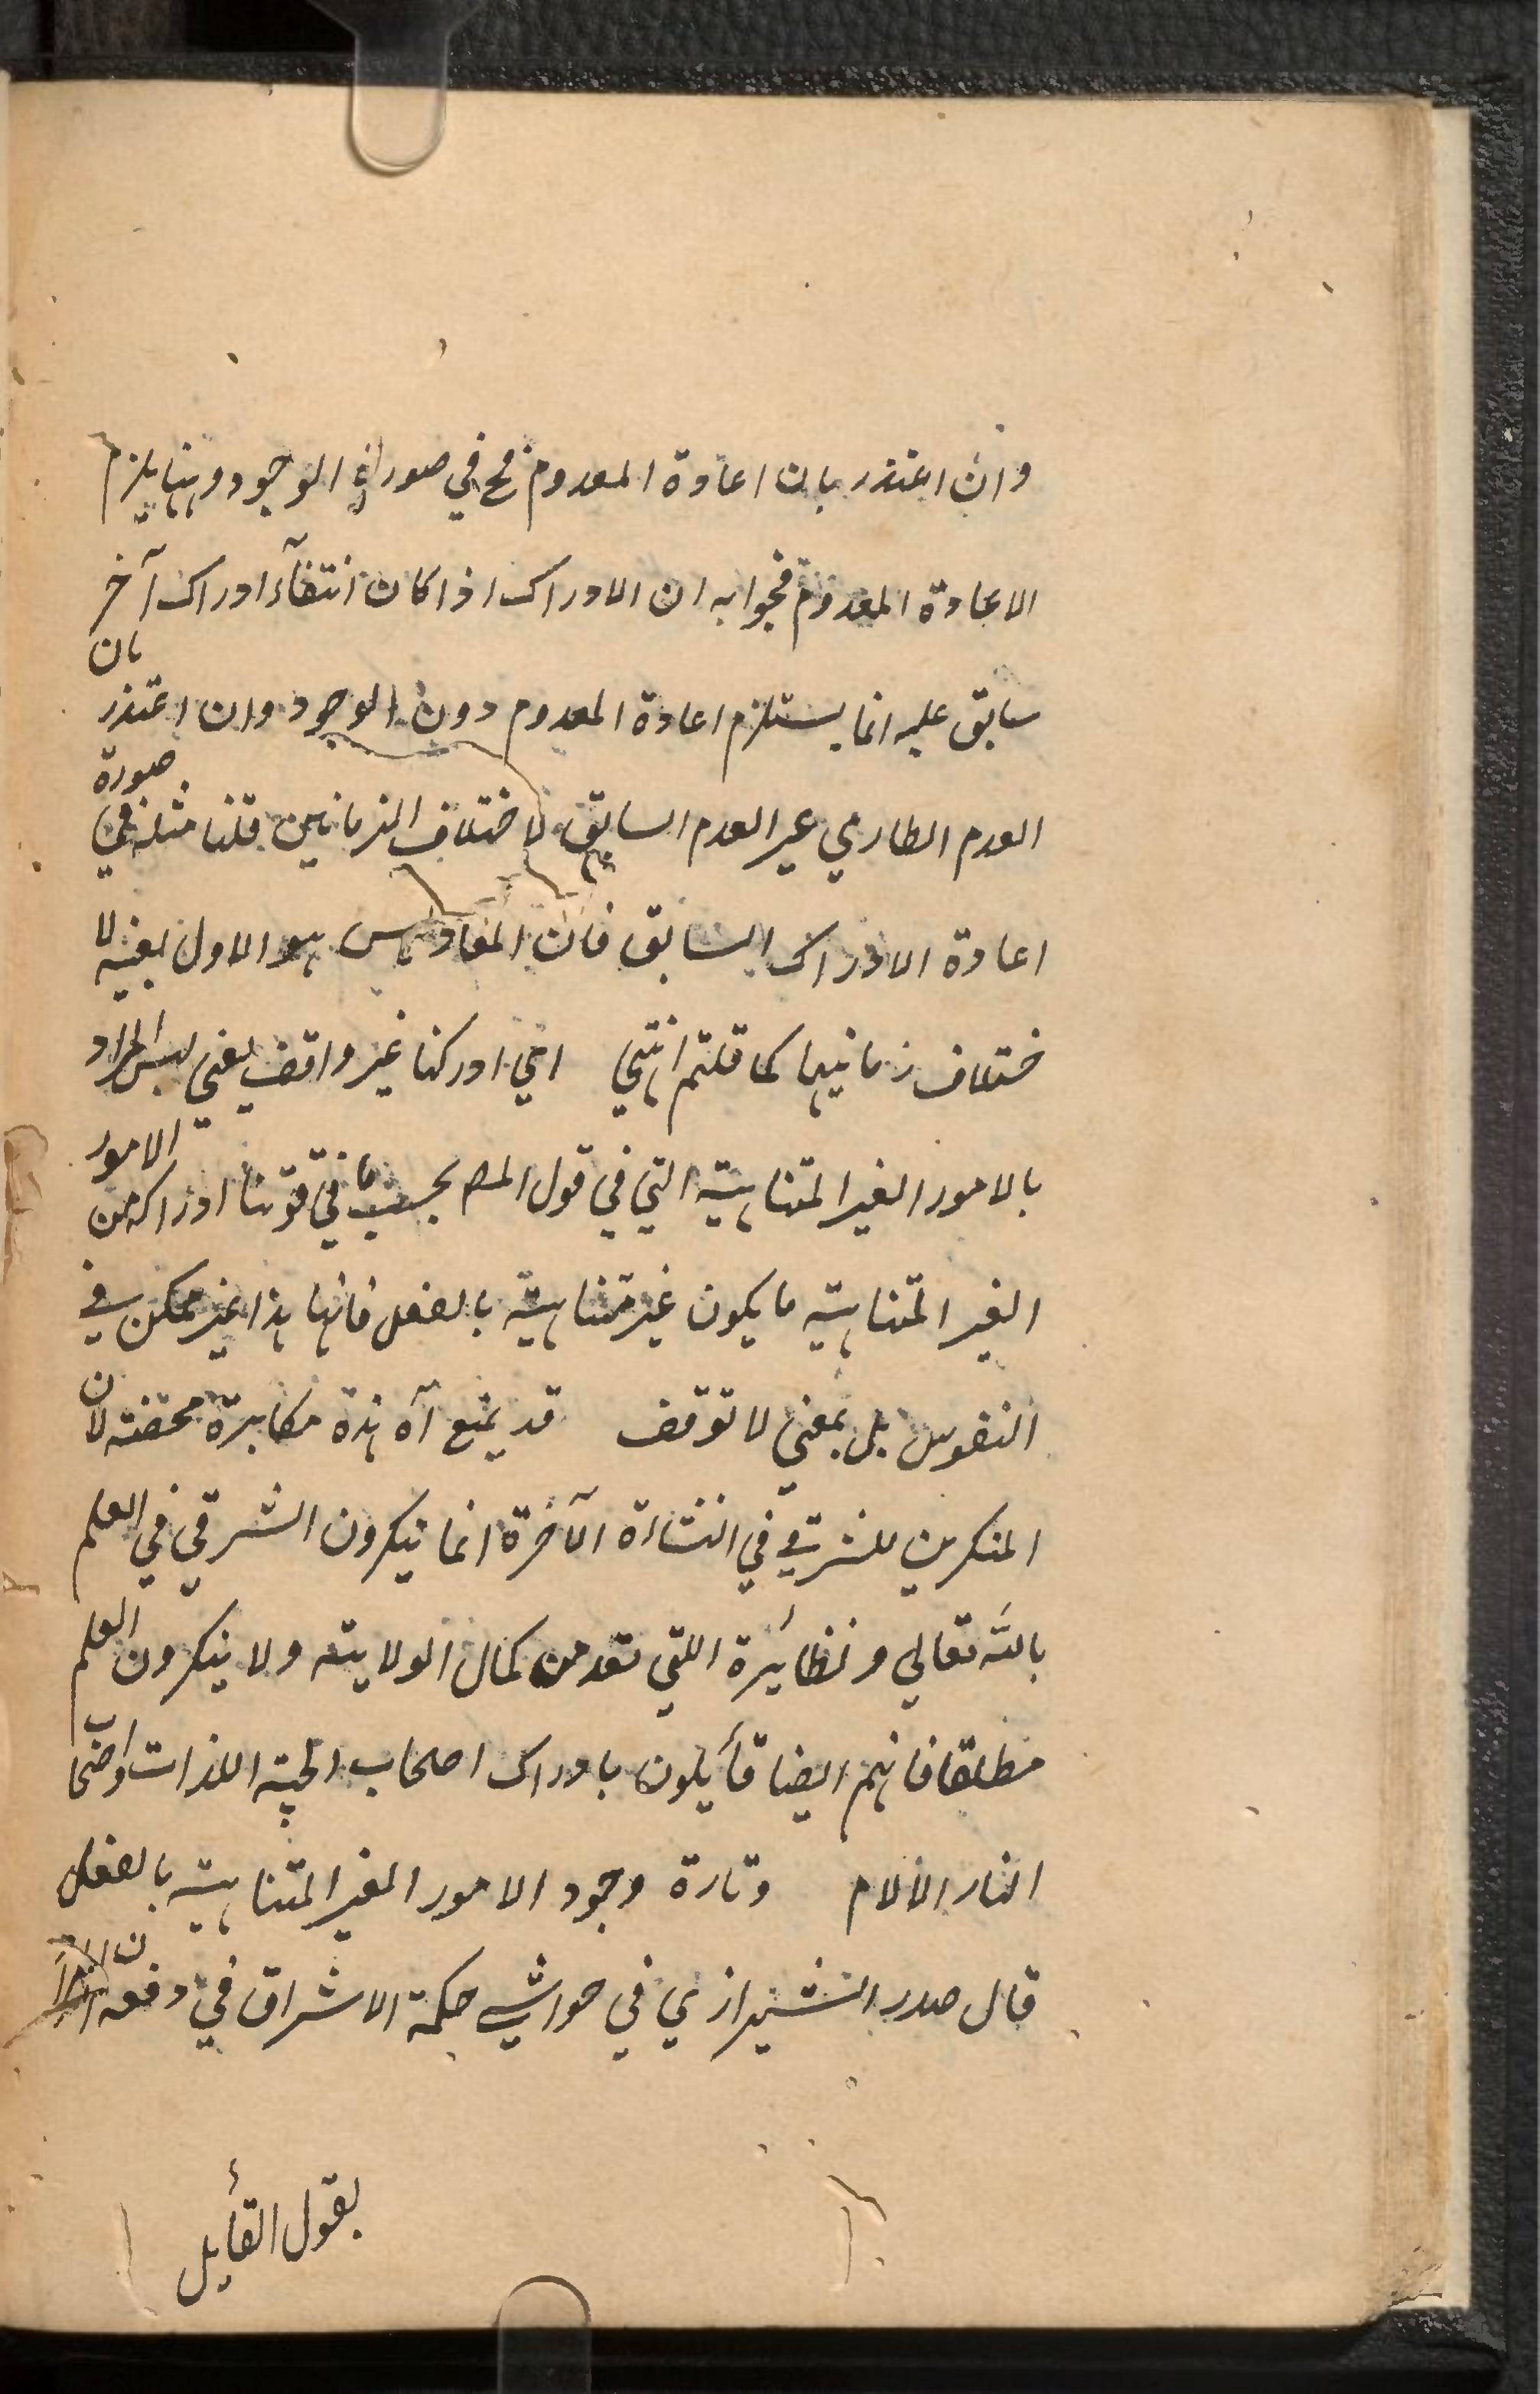 وان اعتذر بان اعادة المعدوم مح في صورة الوجود وههنا يلزم
الاعادة المعدوم فجوابه ان الادراك اذا كان انتفآء ادراك آخر
سابق عليه انما يستلزم اعادة المعدوم دون الوجود وان اعتذر بان
العدم الطاري غير العدم السابق لاختلاف الزمانين قلنا مثله في صورة
اعادة الادراك السابق فان المعاد ليس هو الاول بعينه لا
ختلاف زمانيهما كما قلتم انتهي اي ادركنا غير واقف يعني ليس المراد
بالامور الغير المتناهية التي في قول المص بحسب ما في قوتنا ادراكه من الامور
الغير المتناهية ما يكون غير متناهية بالفعل فانها هذا غير ممكن في
النفوس بل بمعني لا توقف قد يمنع آه هذه مكابرة محضة لان
المنكرين للترقي في النشاءة الآخرة انما ينكرون الترقي في العلم
بالله تعالي ونظائره اللتي تعد من كمال الولاية ولا ينكرون العلم
مطلقا فانهم ايضا قأيلون بادراك اصحاب الجنة اللذات واصحاب
النار الآلام وتارة وجود الامور الغير المتناهية بالفعل
قال صدر الشيرازي في حواشي حكمة الاشراق في دفعه
بقول القأيل